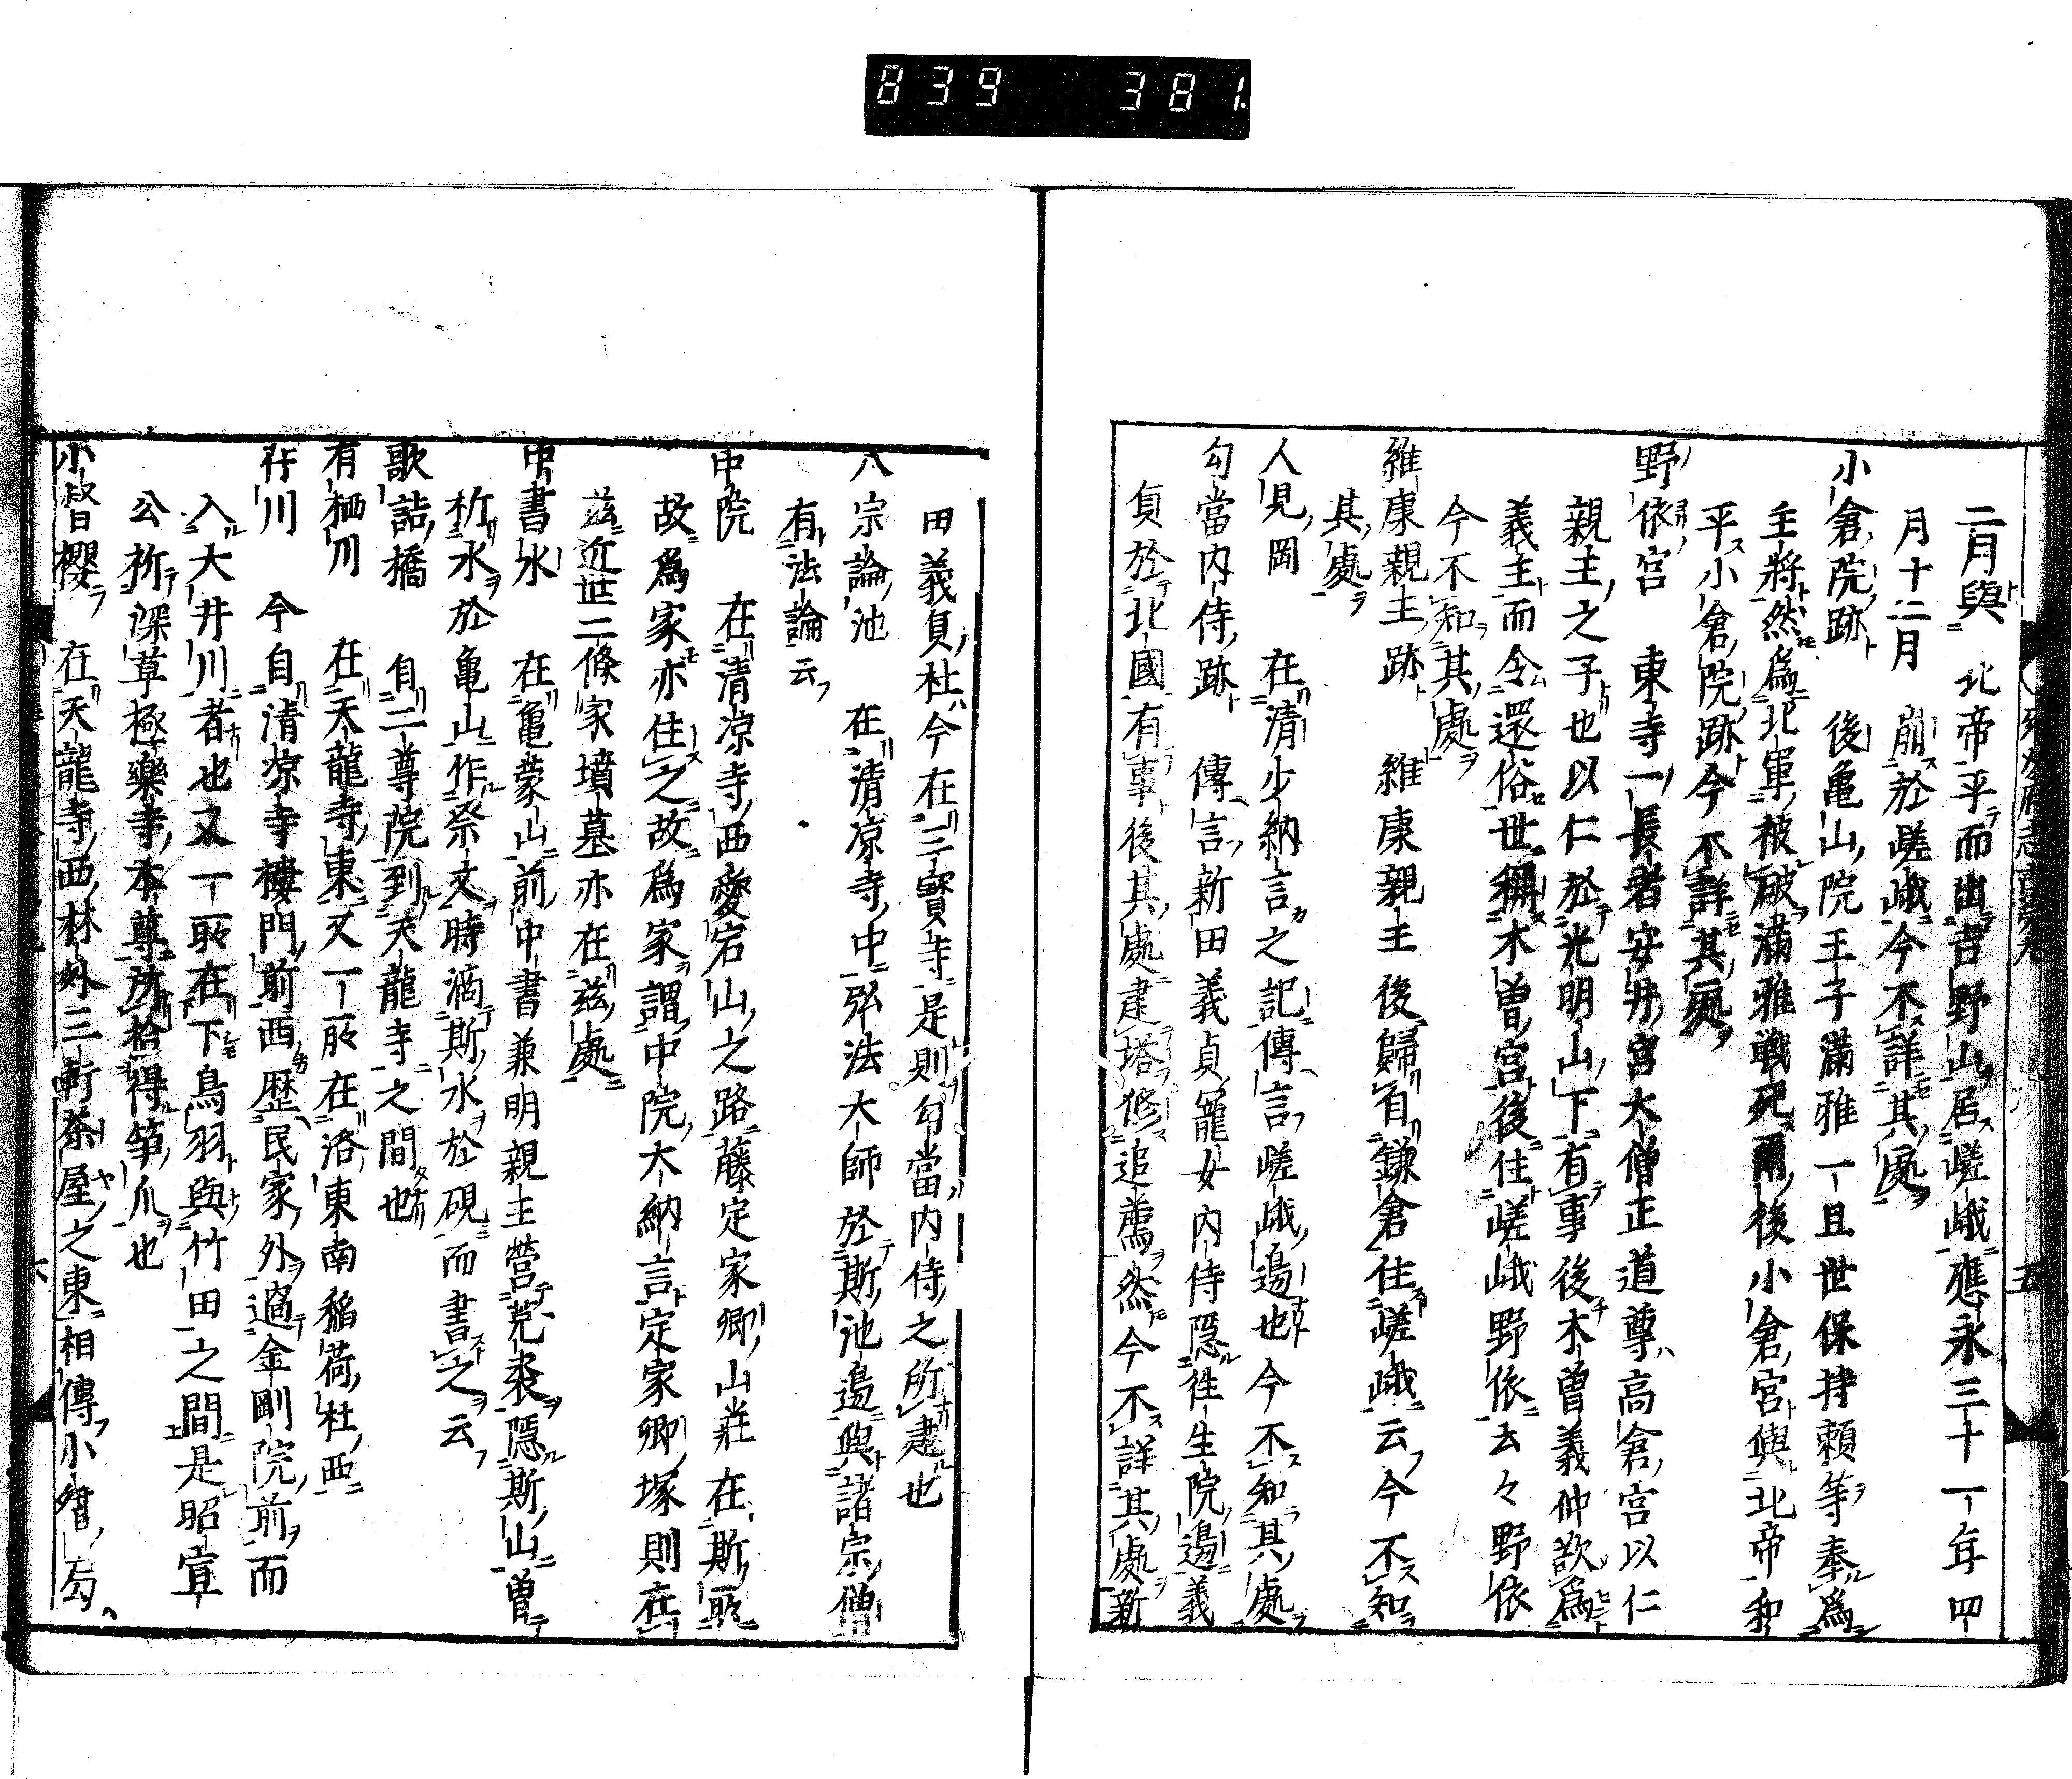 839 381
二月與 北帝平而出吉野山居嵯峨應永三十一年四
月十二月 崩於嵯峨今不詳其處
小倉院跡 後亀山院王子滿雅一旦世保持頼等奉爲
主將然爲北軍被破滿雅戰死爾後小倉宮與北帝和
平小倉院跡今不詳其處
野依宮 東寺一長者安井宮大僧正道尊高倉宮以仁
親王之子也以仁於光明山下有事後木曽義仲欲爲
義主而令還俗世稱木曽宮後住嵯峨野依去々野依
今不知其處
維康親王跡 維康親王後歸自鎌倉住嵯峨云今不知
其處
人見岡 在清少納言之記傳言嵯峨邊也今不知其處
勾當内侍跡 傳言新田義貞寵女内侍隠徃生院邊義
貞於北國有事後其處建塔修追薦然今不詳其處新
五
田義貞杜今在三寶寺是則勾當内侍之所建也
八宗論池 在清凉寺中弘法大師於斯池邊與諸宗僧
有法論云
中院 在清凉寺西愛宕山之路藤定家卿山荘在斯処
故爲家亦住之故爲家謂中院大納言定家卿塚則在
茲近世二條家墳墓亦在茲處
中書水 在亀山前中書兼明親王營菟裘隠斯山曽
祈水於亀山作祭文時滴斯水於硯而書之云
歌詰橋 自二尊院到天龍寺之間也
有栖川 在天龍寺東又一所在洛東南稲荷杜西
芹川 今自清凉寺樓門前西歴民家外過金剛院前而
入大井川者也又一所在下鳥羽與竹田之間是昭宣
公於深草極樂寺本尊所拾得筝爪也
小督櫻 在天龍寺西林外三軒茶屋之東相傳小督勾
六